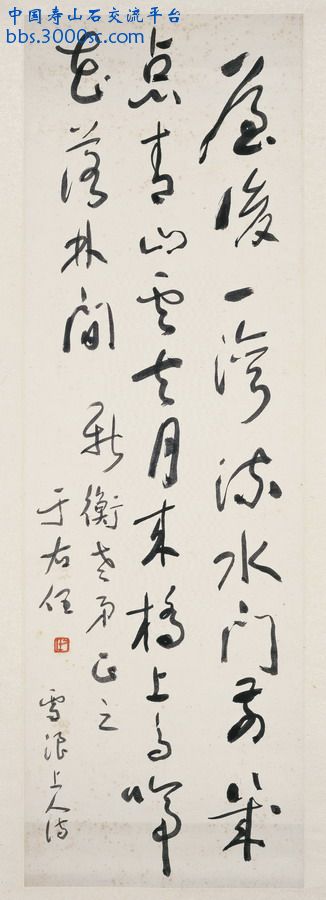 中国寿山石交流平台
bbs.3000sc.com
屋後一灣流水門前幾
点青山雲去月来橋上鳥啼
花落林間
新衡老弟正之
于右任
雪浪上人詩